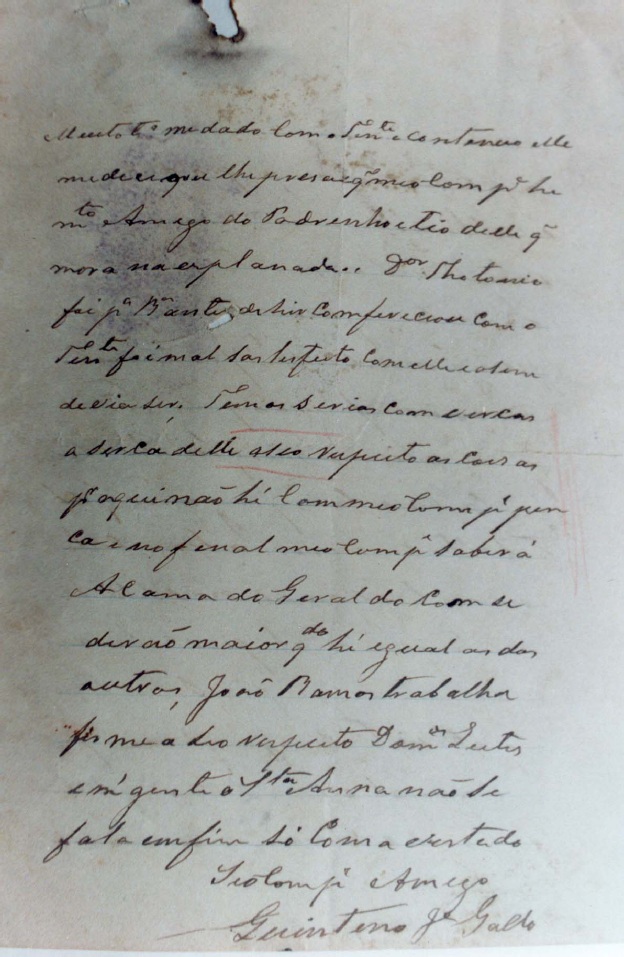 Muito tº me dado com o Tente e contenuo elle
me dice que lhe presa e q meo Comp.e hé
mto Amego do Padrenho e tio delle q
mora na explanada.. Dor Theotonio
foi pª Bª ante de hir comfereciou com o
Tente foi mal sastesfeito com elle e asem
devia ser, Temos serias comvercas
a serca delle a seo respeito as cousas
pr aqui não hé como meo Comp.e pen
ca e no fenal meo Comp.e saberá
A cama do Geraldo comse
derão maior qdo hé egual as das
outras, João Ramos trabalha
firme a seo respeito Domos Leites
e mª gente a Sta Anna não se
fala emfim só com a vestado
Seo Comp.e Amego
Quinteno Je Gallo